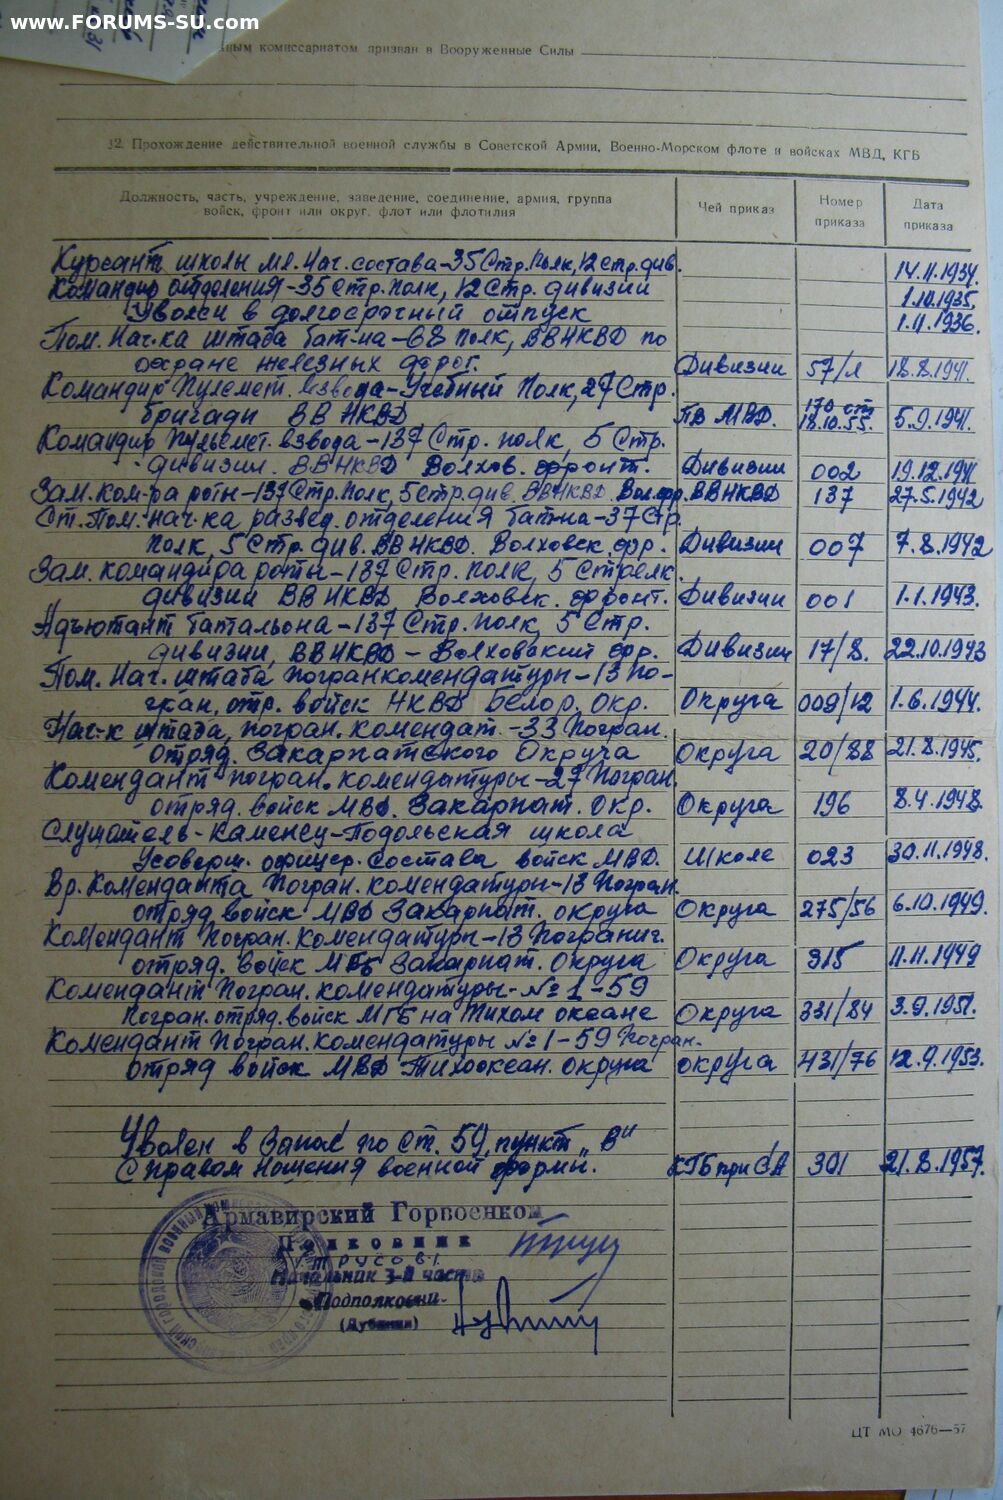 www.FORUMS-SU.com
ным комиссариатом призван в Вооруженные Силы
32. Прохождение действительной военной службы в Советской Армии, Военно-Морском флоте и войсках МВД, КГБ
Должность, часть, учреждение, заведение, соединение, армия, группа войск, фронт или округ, флот или флотилия Чей приказ Номер приказа Дата приказа
Курсант школы мл. Нач. состава-35 Стр. Полк, 12 стр. див. 14.11.1934.
Командир отделения-35 Стр. полк, 12 Стр. дивизии 1.10.1935.
Уволен в долгосрочный отпуск 1.11.1936.
Пом. Нач-ка штаба бат-на-68 полк, ВВ НКВД по
охране железных дорог. Дивизии 57/л 18.8.1941.
Командир Пулемет. взвода-Учебный Полк, 27 Стр.
бригади ВВ НКВД ПВ МВД. 170 от 18.10.55. 5.9.1941.
Командир Пульмет. взвода-137 Стр. полк, 5 Стр.
дивизии. ВВ НКВД Волхов. фронт. Дивизии 002 19.12.1941
Зам. Ком-ра роты-137 Стр. Полк, 5 стр. див. ВВНКВД. Вол. фр. ВВНКВД 137 27.5.1942
Ст. Пом. нач-ка развед. отделения бат-на-37 Стр.
полк, 5 Стр. див. ВВ НКВД. Волховск. фр. Дивизии 007 7.8.1942
Зам. командира роты-137 Стр. полк, 5 Стрелк.
дивизии ВВ НКВД Волховск. фронт. Дивизии 001 1.1.1943.
Адъютант батальона-137 Стр. полк, 5 Стр.
дивизии, ВВ НКВД-Волховский фр. Дивизии 17/8. 22.10.1943
Пом. Нач. штаба погранкомендатуры-13 по-
гран. отр. войск НКВД Белор. окр. Округа 009/12 1.6.1944.
Нач-к штаба, погран. комендат.-33 Погран.
отряд. Закарпатского Округа Округа 20/88 21.8.1945.
Комендант погран. комендатуры-27 Погран.
отряд. войск МВД. Закарпат. окр. Округа 196 8.4.1948.
Слушатель-Каменец-Подольская школа
Усоверш. офицер. Состава войск МВД. Школе 023 30.11.1948.
Вр. Коменданта Погран. комендатуры-13 Погран.
отряд. войск МВД Закарпат. округа Округа 275/56 6.10.1949.
Комендант Погран. комендатуры-13 Погранич.
отряд. войск МГБ Закарпат. Округа Округа 315 11.11.1949
Комендант Погран. комендатуры-№1-59
Погран. отряд. войск МГБ на Тихом океане Округа 331/84 3.9.1951.
Комендант Погран. комендатуры №1-59 Погран.
отряд войск МВД Тихоокеан. округа округа 431/76 12.9.1953.
Уволен в Запас по Ст. 59, пункт "В"
С правом ношения военной формы. КГБ при СМ 301 21.8.1957.
Армавирский Горвоенком
Полковник
Начальник 3-й части
Подполковни
ЦТ МО 4676—57